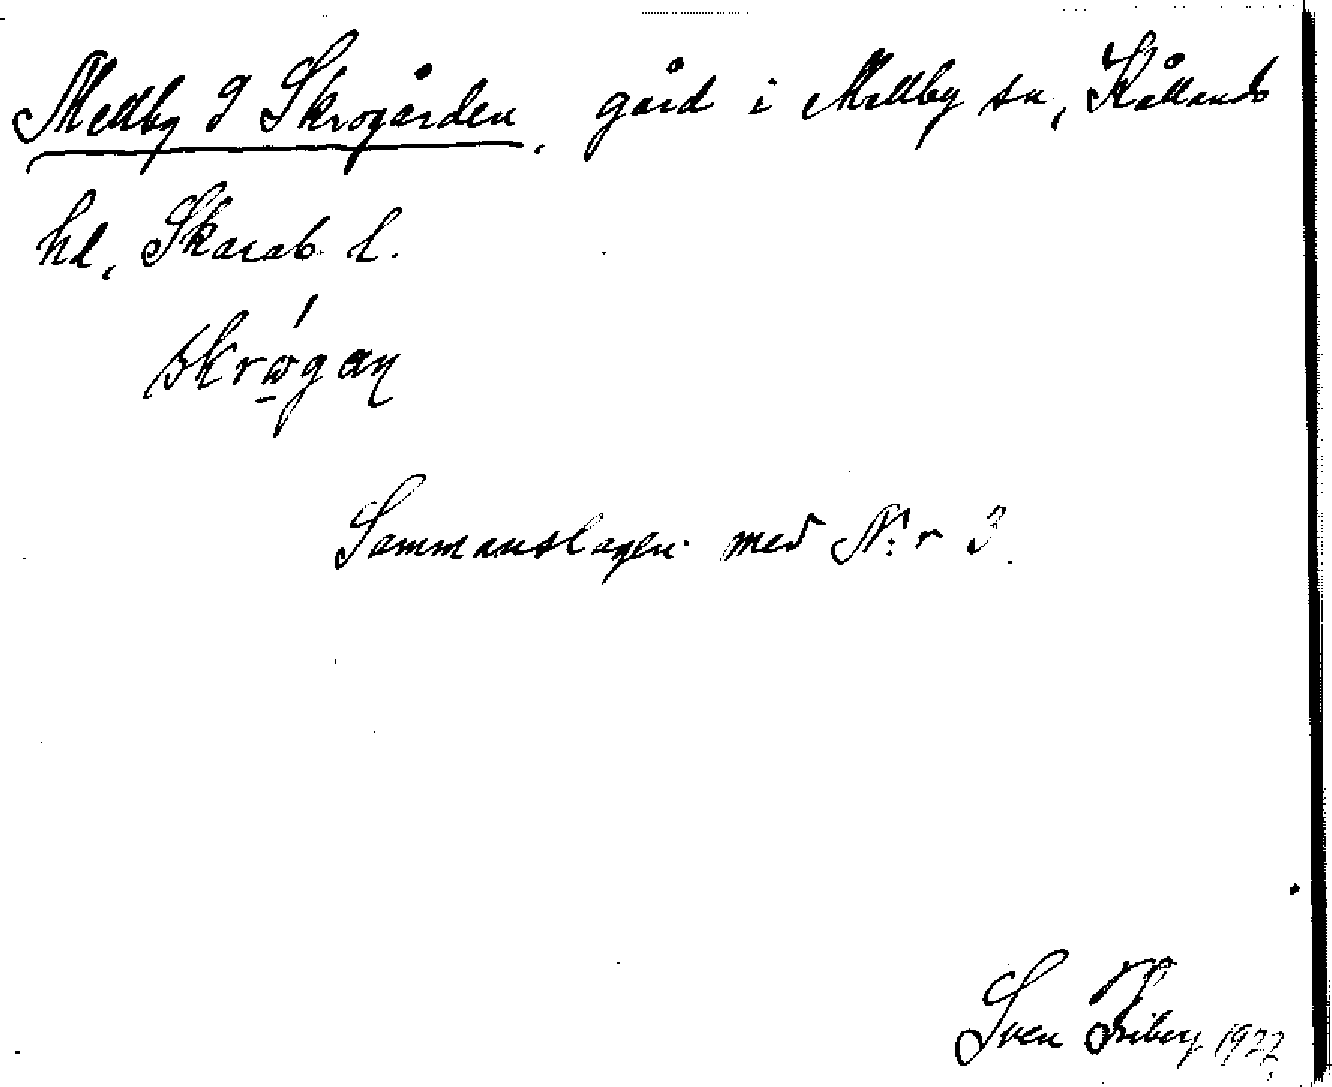 Mellby 9 Skrogården, gård i Mellby sn, Kållands
hd, Skarab. l.
skrώ̱gaɳ
Sammanslagen med N:r 3.
Sven Friberg 1922